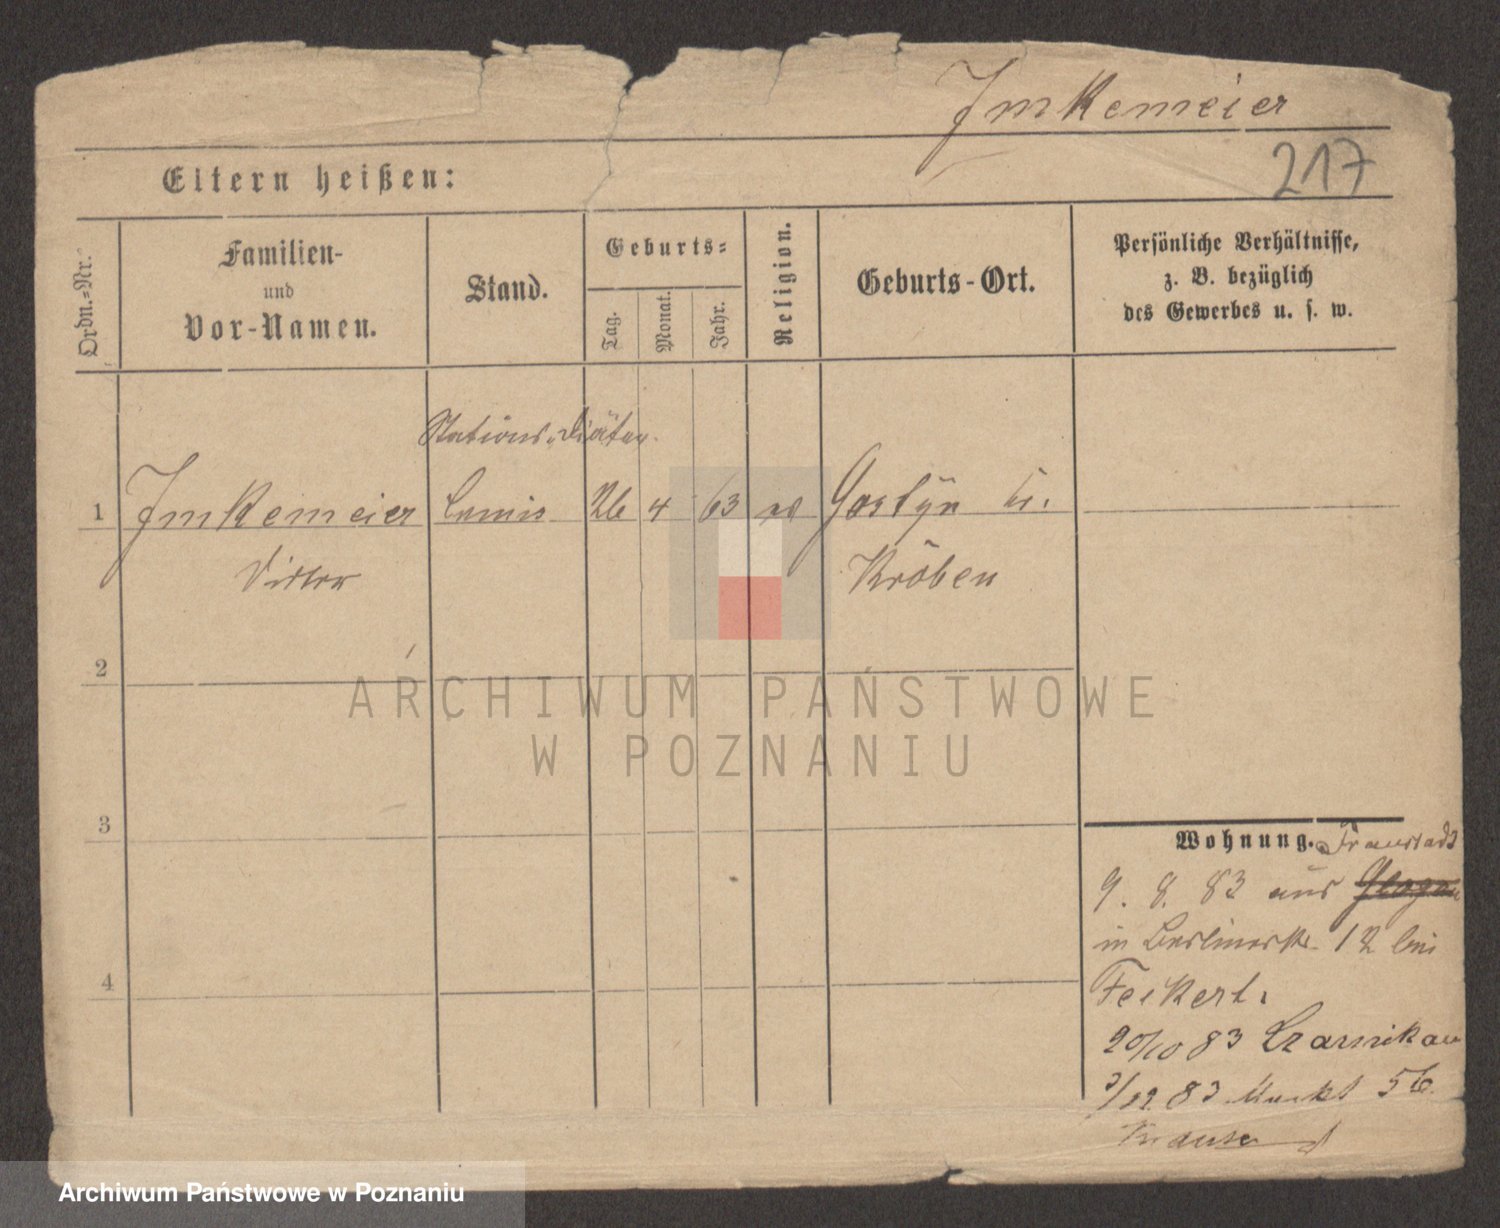 Imkemeier
217
Eltern heißen:
Ordn.=Nr.
Familien-
und
Vor-Namen.
Stand.
Geburts=
Tag.
Monat.
Jahr.
Religion.
Geburts-Ort.
Persönliche Verhältnisse,
z. B. bezüglich
des Gewerbes u. s. w.
Stations-Diätar
1 Imkemeier 26 4 63 Gostyn Kr.
Kröben
2
3
4
Wohnung. Fraustadt
9. 8. 83 aus Glogau
in Berlinerstr. 12 bei
Feikert.
20/10 83 Czarnikau
3/12 83 Markt 56
Krause
ARCHIWUM PAŃSTWOWE
W POZNANIU
Archiwum Państwowe w Poznaniu